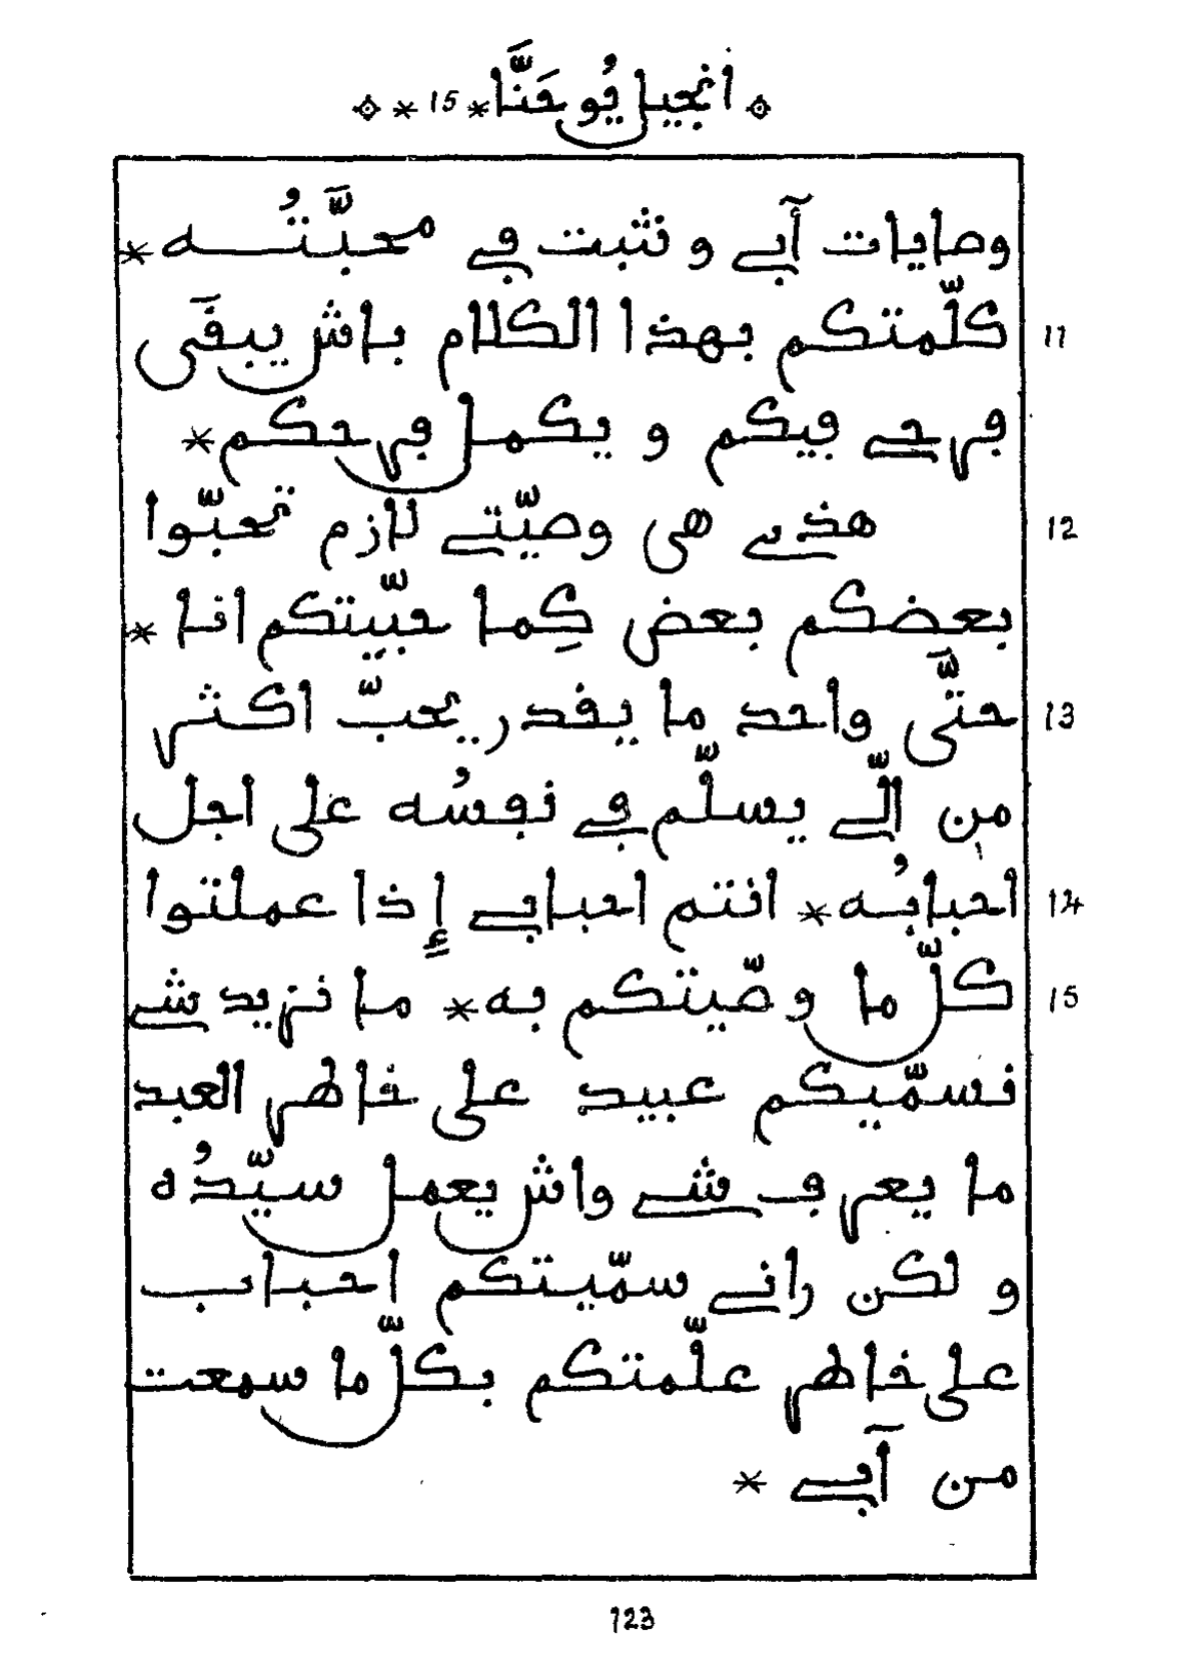 انجيل يُوحَنَّا * 15 *
وصايات آبي و نثبت في محبَّتُه *
11 كلّمتكم بهذا الكلام باش يبقَى
فرحي فيكم و يكمل فرحكم *
12 هذي هي وصيّتي لازم تحبّوا
بعضكم بعض كِما حبّيتكم انا *
13 حتَّى واحد ما يقدر يحبّ اكثر
من الّي يسلّم في نفسُه على اجل
14 احبابُه * انتم احبابي إذا عملتوا
15 كلّ ما وصّيتكم به * ما نزيد شي
نسمّيكم عبيد على خاطر العبد
ما يعرف شي واش يعمل سيّدُه
و لكن راني سمّيتكم احباب
على خاطر علّمتكم بكلّ ما سمعت
من آبي *
123